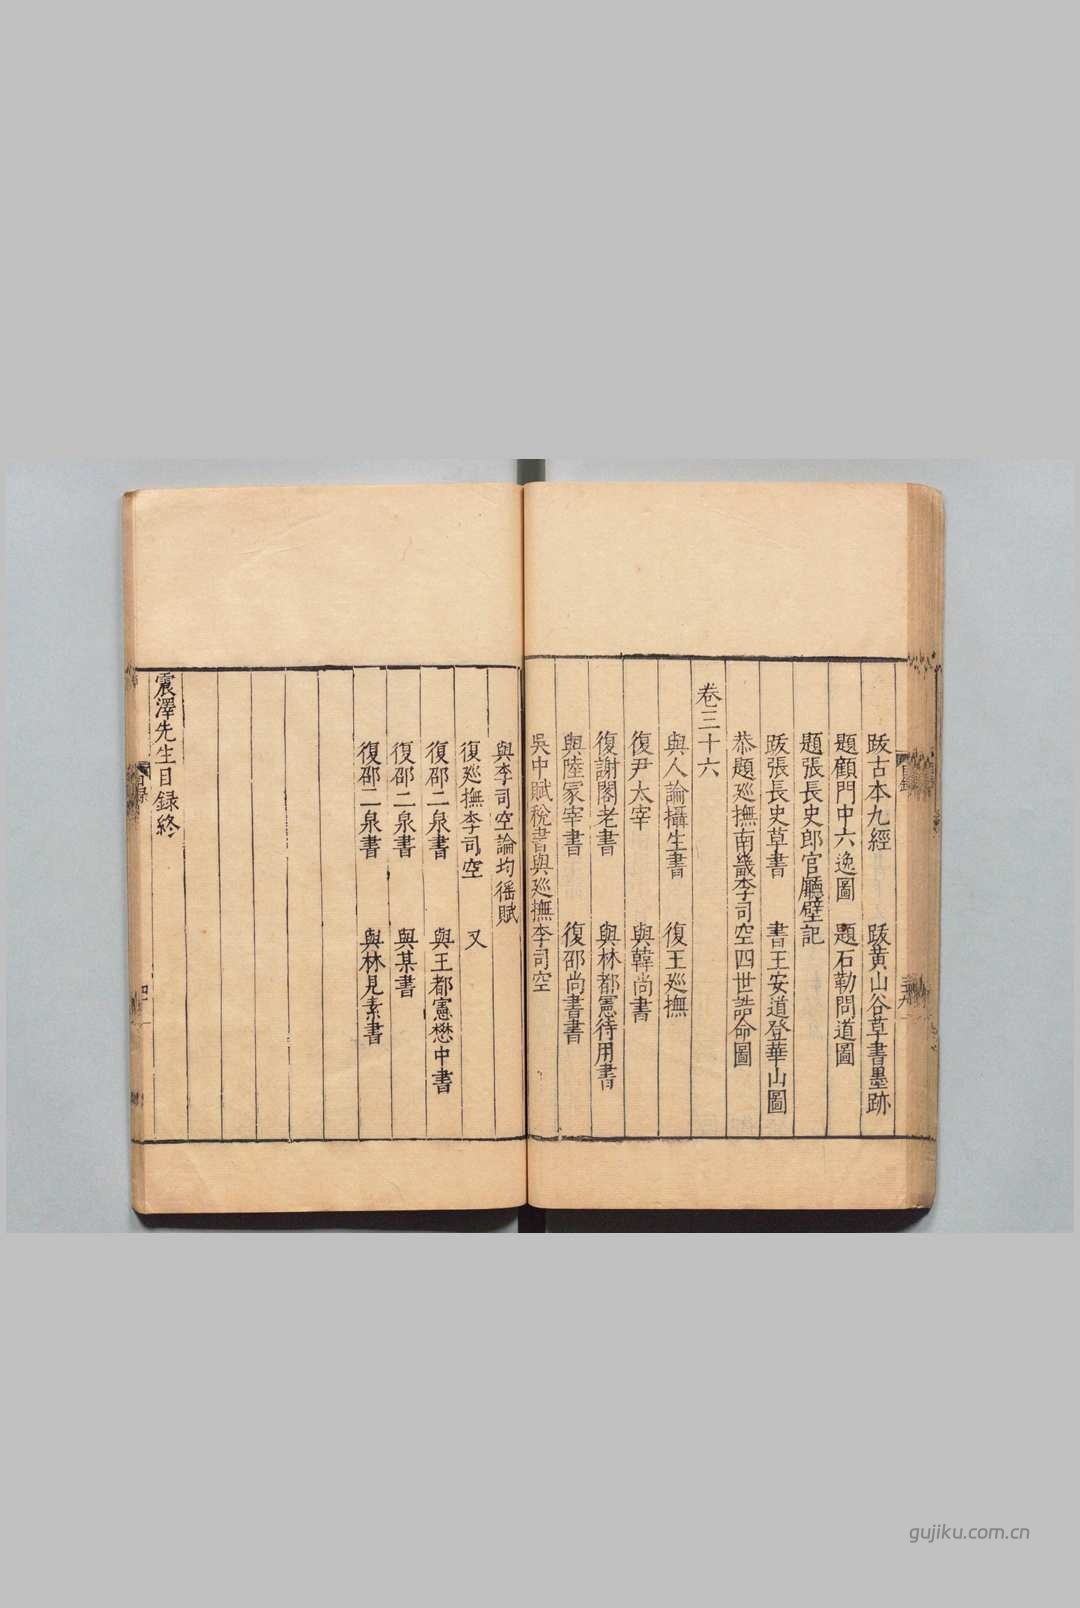 跋古本九經　跋黄山谷草書墨跡
題顧閎中六逸圖　題石勒問道圖
題張長史郎官廳壁記
跋張長史草書　書王安道登華山圖
恭題廵撫南畿李司空四世誥命圖
卷三十六
與人論攝生書　復王廵撫
復尹太宰　與韓尚書
復謝閣老書　與林都憲待用書
與陸冢宰書　復邵尚書書
吳中賦稅書與廵撫李司空
與李司空論均徭賦
復廵撫李司空　又
復邵二泉書　與王都憲懋中書
復邵二泉書　與某書
復邵二泉書　與林見素書
震澤先生目録終
gujiku.com.cn